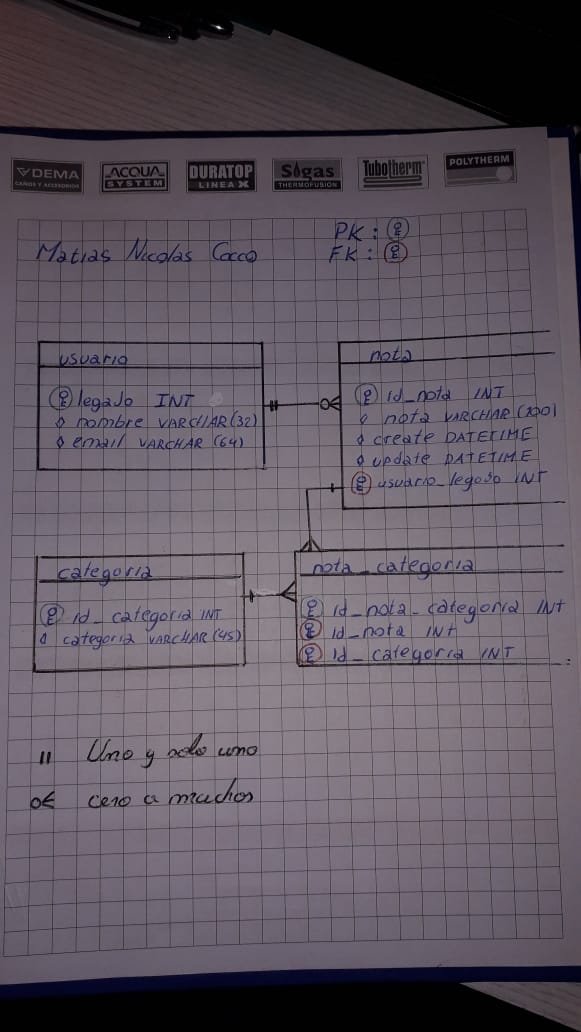 DEMA
CAÑOS Y ACCESORIOS
ACQUA
SYSTEM
DURATOP
LINEA X
Sigas
THERMOFUSION
Tubotherm
POLYTHERM
Matias Nicolas Cocco
PK:
FK:
usuario
legado INT
nombre VARCHAR(32)
email VARCHAR (64)
nota
id_nota INT
nota VARCHAR (200)
create DATETIME
update DATETIME
usuario_legado INT
categoria
id_categoria INT
categoria VARCHAR (45)
nota_categoria
id_nota_categoria INT
id_nota INT
id_categoria INT
Uno y solo uno
cero a muchos